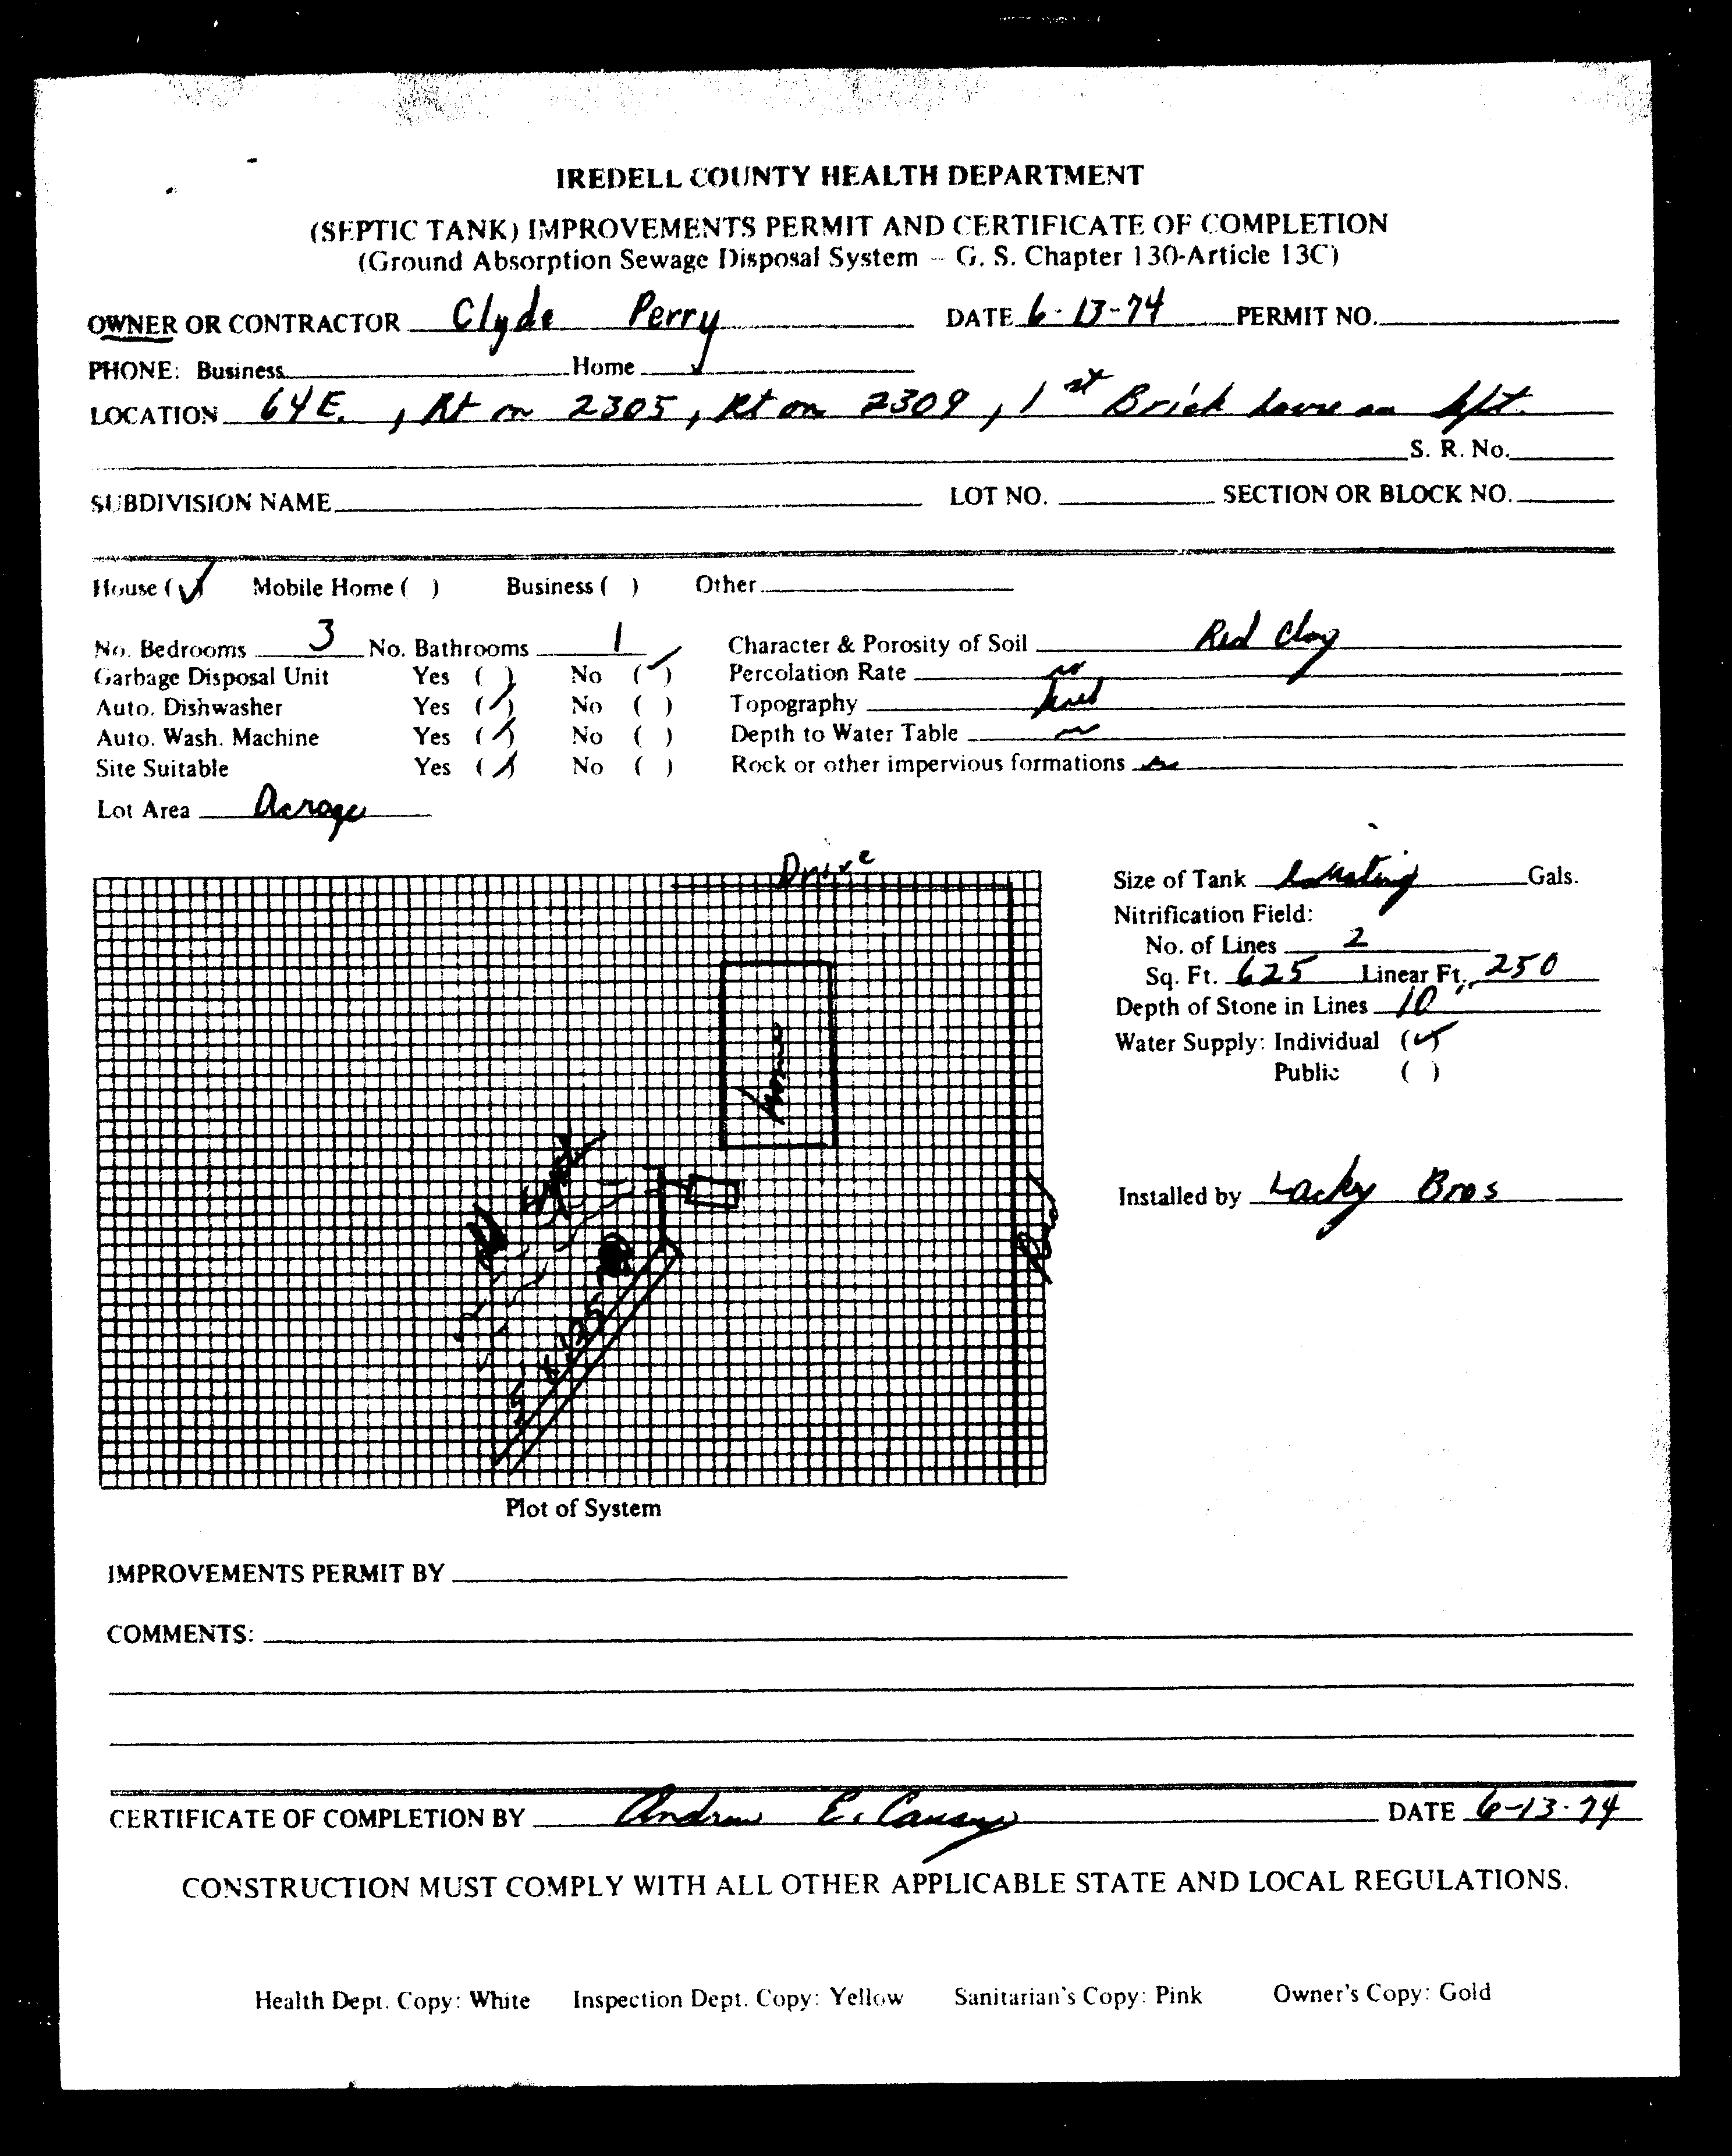 IREDELL COUNTY HEALTH DEPARTMENT
(SEPTIC TANK) IMPROVEMENTS PERMIT AND CERTIFICATE OF COMPLETION
(Ground Absorption Sewage Disposal System – G. S. Chapter 130-Article 13C)
OWNER OR CONTRACTOR Clyde Perry DATE 6-13-74 PERMIT NO.
PHONE: Business Home
LOCATION 64 E., Rt on 2305, Rt on 2309, 1st Brick house on left.
S. R. No.
SUBDIVISION NAME LOT NO. SECTION OR BLOCK NO.
House (✓) Mobile Home ( ) Business ( ) Other
No. Bedrooms 3 No. Bathrooms 1 Character & Porosity of Soil Red Clay
Garbage Disposal Unit Yes ( ) No (✓) Percolation Rate
Auto. Dishwasher Yes (✓) No ( ) Topography
Auto. Wash. Machine Yes (✓) No ( ) Depth to Water Table
Site Suitable Yes (✓) No ( ) Rock or other impervious formations
Lot Area Acrage
Drive
Size of Tank Existing Gals.
Nitrification Field:
No. of Lines 2
Sq. Ft. 625 Linear Ft. 250
Depth of Stone in Lines 10"
Water Supply: Individual (✓)
Public ( )
Home
Installed by Lacky Bros
5' x 125'
Plot of System
IMPROVEMENTS PERMIT BY
COMMENTS:
CERTIFICATE OF COMPLETION BY Andrew E. Causey DATE 6-13-74
CONSTRUCTION MUST COMPLY WITH ALL OTHER APPLICABLE STATE AND LOCAL REGULATIONS.
Health Dept. Copy: White Inspection Dept. Copy: Yellow Sanitarian's Copy: Pink Owner's Copy: Gold